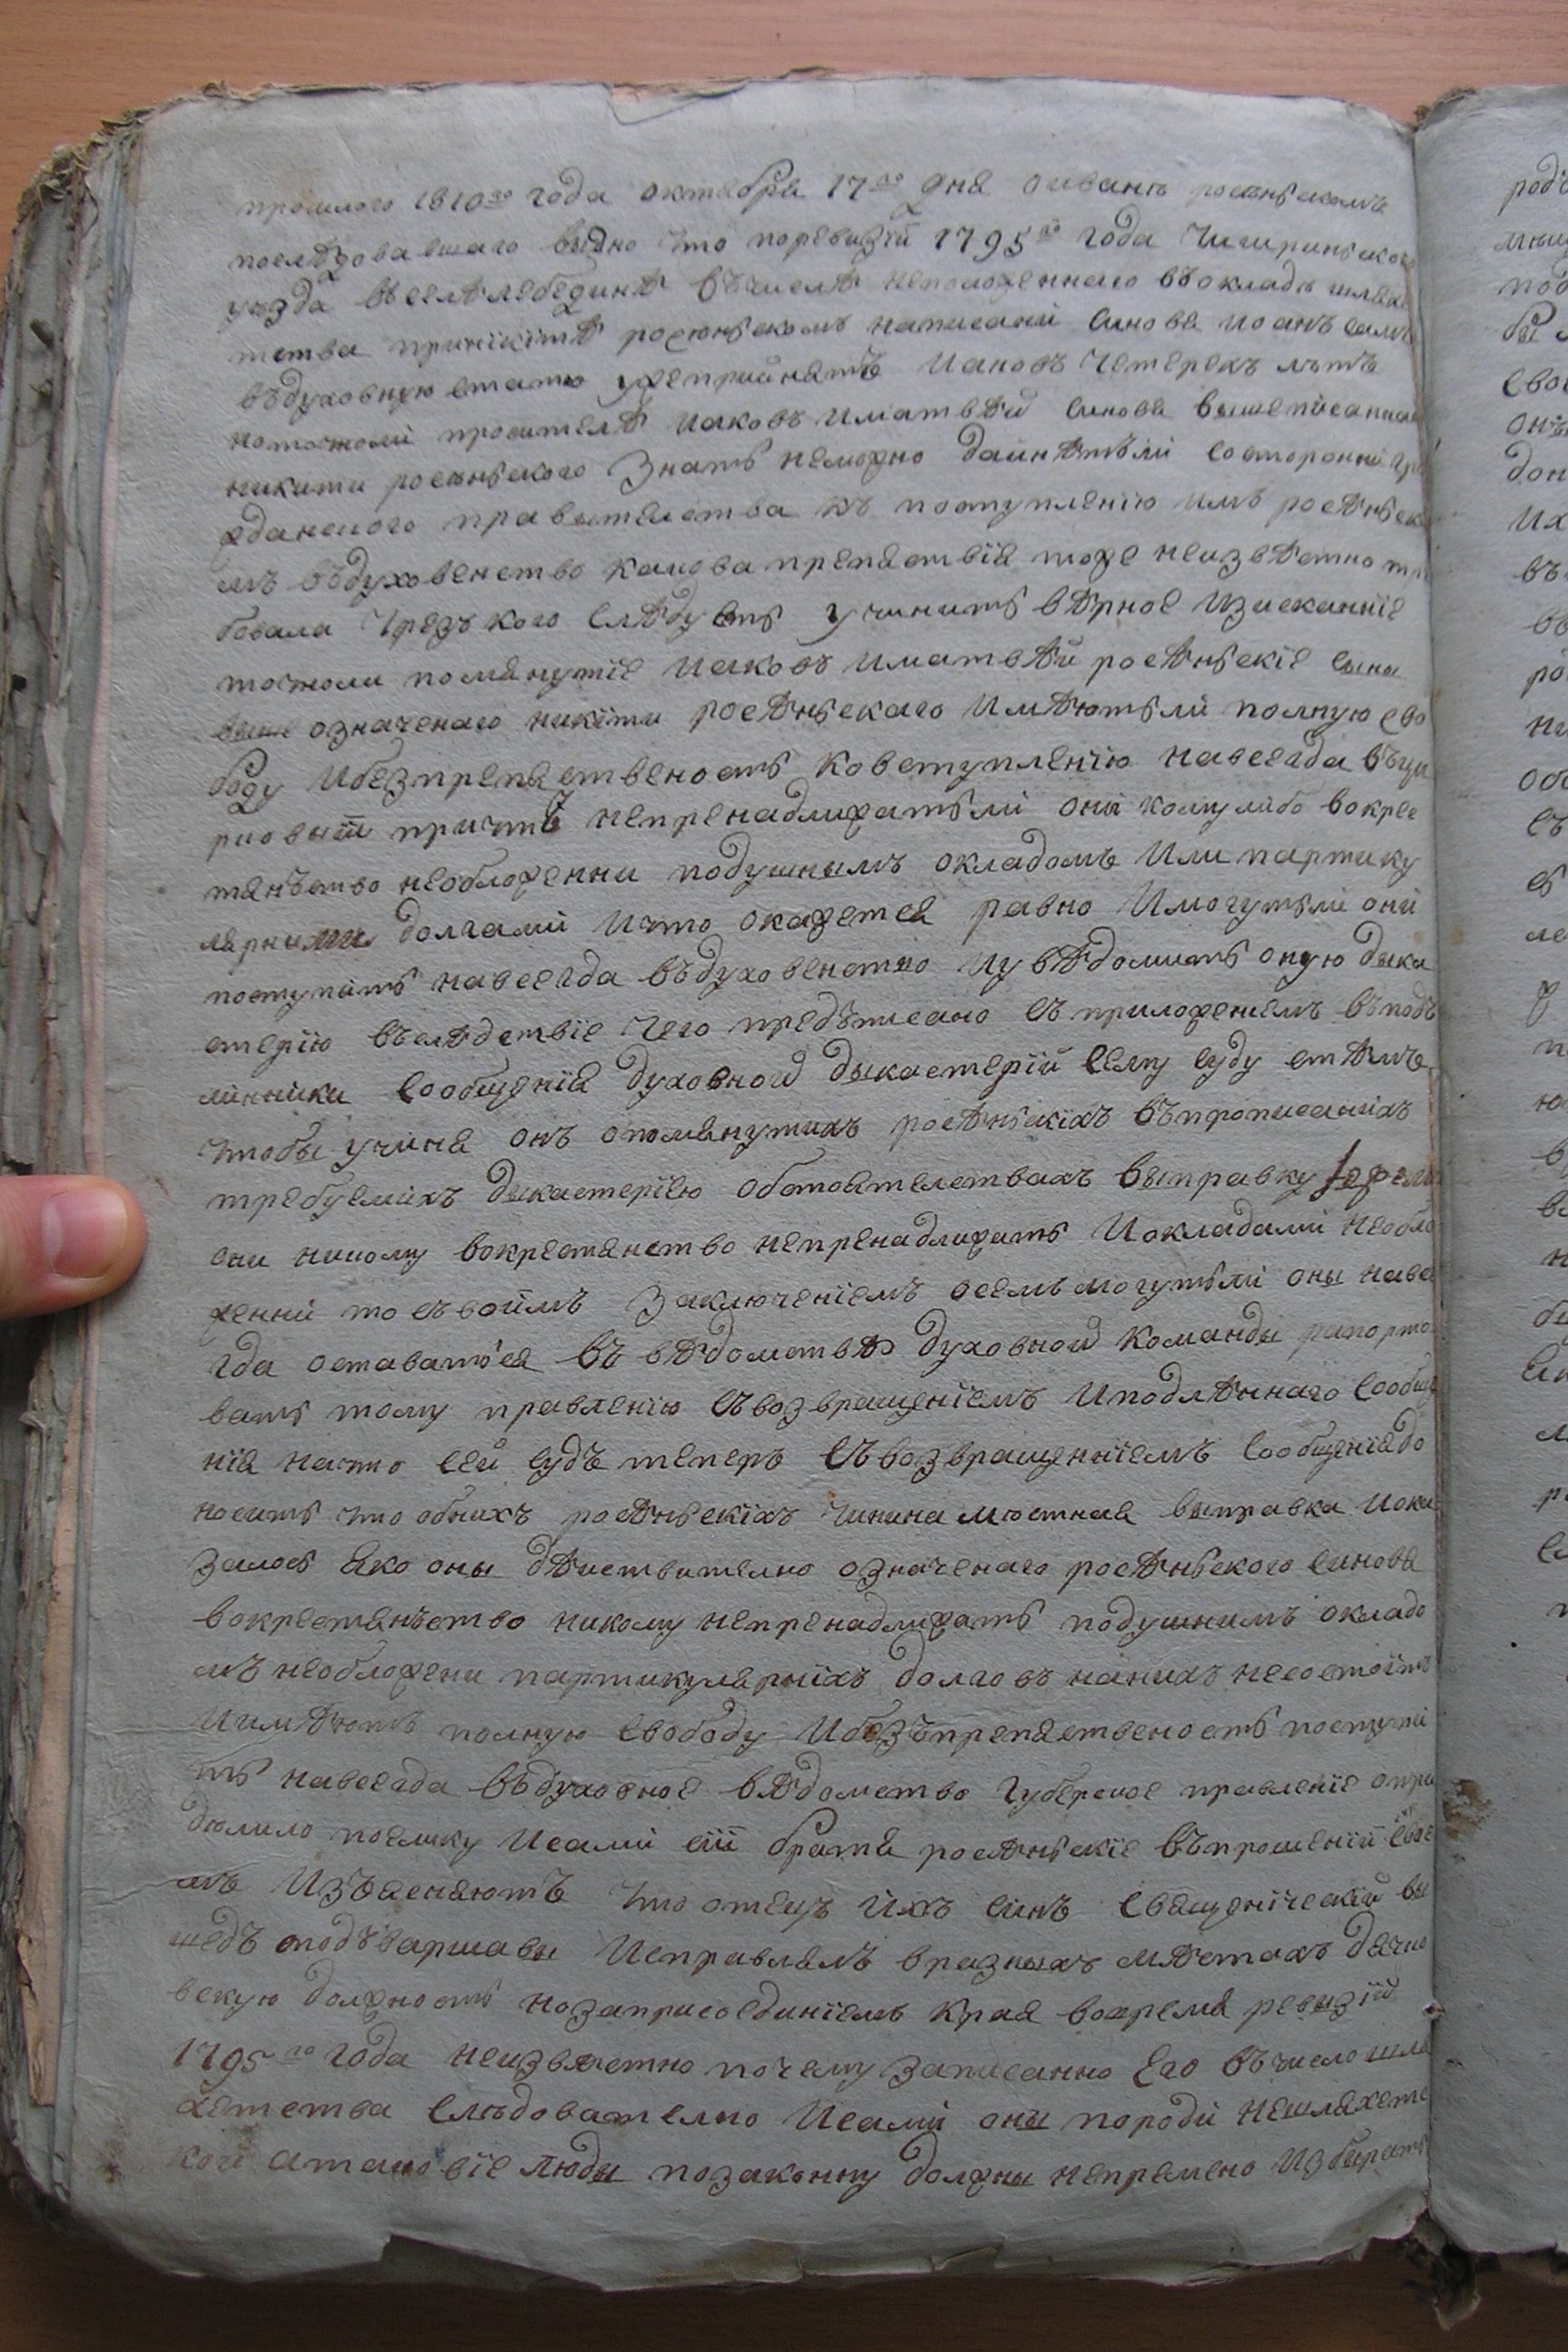 прошлого 1810го года октебря 17го дня оиванѣ росѣнъскомъ
последзовавшаго видно что поревизій 1795го года Чигиринъского
уѣзда въселѣ лебединѣ въчислѣ неположеннаго въокладъ шляхе
тства приникитѣ росюнъскомъ написани синовя иоанъ самъ
въдуховную статю ужепрійнятъ Иаковъ четерехъ лѣтъ
но точноли просителѣ иаковъ иматвѣй синовя вышеписаннаго
никити росѣнъского знать неможно даинѣтъли состороннигра
жданского правителства къ поступленію имъ росѣнъски
мъ въдуховенство какова препяствія тоже неизвѣстно тре
бовала чрезъ кого слѣдуетъ учинить вѣрное изисканніе
точноли помянутіе иаковъ иматвѣй росѣнъскіе сыны
више означенаго никіти росѣнъскаго имѣютъли полную сво
боду ибезпрепятственость ковступленію навсегда въце
рковній причтъ непренадлижатъли они кому либо вокрес
тянъство необложенни подушнымъ окладомъ или партику
лярними долгами ичто окажется равно имогутъли они
поступить навсегда въдуховенство иувѣдомить оную дика
стерію въслѣдствіе чего предъписано съ приложеніемъ въподъ
линники сообщенія духовной дикастерій сему суду стѣмъ
чтобы учиня онъ опомянутихъ росѣнъскіхъ въпрописаніхъ
требуеміхъ дикастеріею обстоятелствахъ выправку ежели
они никому вокрестянство непренадлижатъ иокладами необло
женни то съвоимъ заключеніемъ осемъ могутъли оны навсе
гда оставатъся въ вѣдомствѣ духовной команды рапорто
вать тому правленію съвозвращеніемъ иподлѣннаго сообще
нія начто сей судъ теперь съвозвращенніемъ сообщенія до
носитъ что обнихъ росѣнъскіхъ чинина мюстная выправка иока
залось яко оны дѣиствително означенаго росѣнъского синовя
вокрестянъство никому непренадлижатъ подушнимъ окладо
мъ необложени партикулярніхъ долговъ наніихъ несостоїтъ
иимѣютъ полную свободу ибезъпрепятственость поступи
ть навсегда въдуховное вѣдомство губерское правленіе опре
дюлило поелику исами сіи братя росѣнъскіе въпрошеніи свое
мъ изъясняютъ что отецъ ихъ синъ священіческій вы
шедъ сподъваршавы исправлялъ вразныхъ мѣстахъ дячко
вскую должность позаприсоединіемъ края вовремя ревизій
1795го года неизвѣстно почему записанно его въчисло шля
хетства слѣдователно исами оны породи нешляхетс
кой атаковіе люды позаконну должны непремено избирать